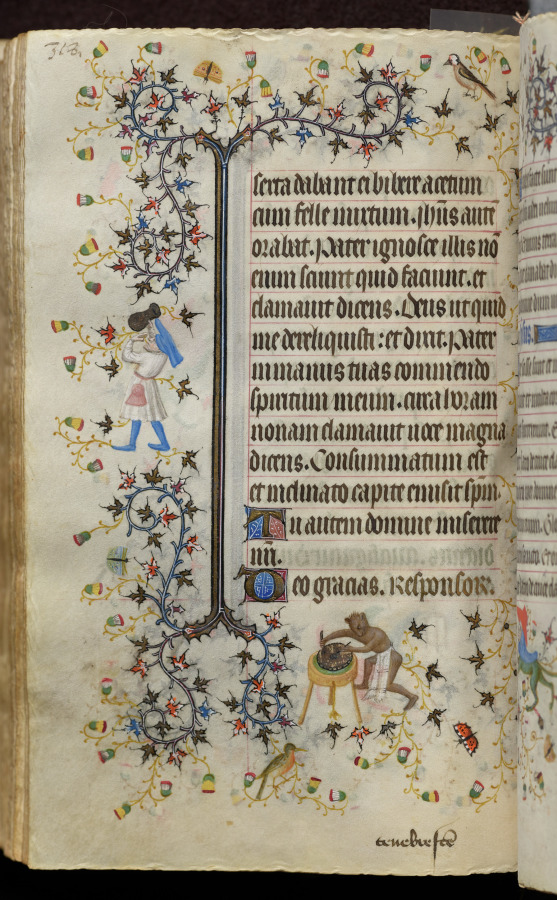 313
serta dabant ei bibere acetum
cum felle mixtum. Jhūs aute
orabat. Pater ignosce illis nō
enim sciunt quid faciunt. et
clamavit dicens. Deus ut quid
me dereliquisti : et dixit. Pater
in manus tuas commendo
spiritum meum. circa horam
nonam clamavit voce magna
dicens. Consummatum est
et inclinato capite emisit spm̄.
Tu autem domine miserere
nr̄i.
Deo gracias. Responsor.
tenebre fce